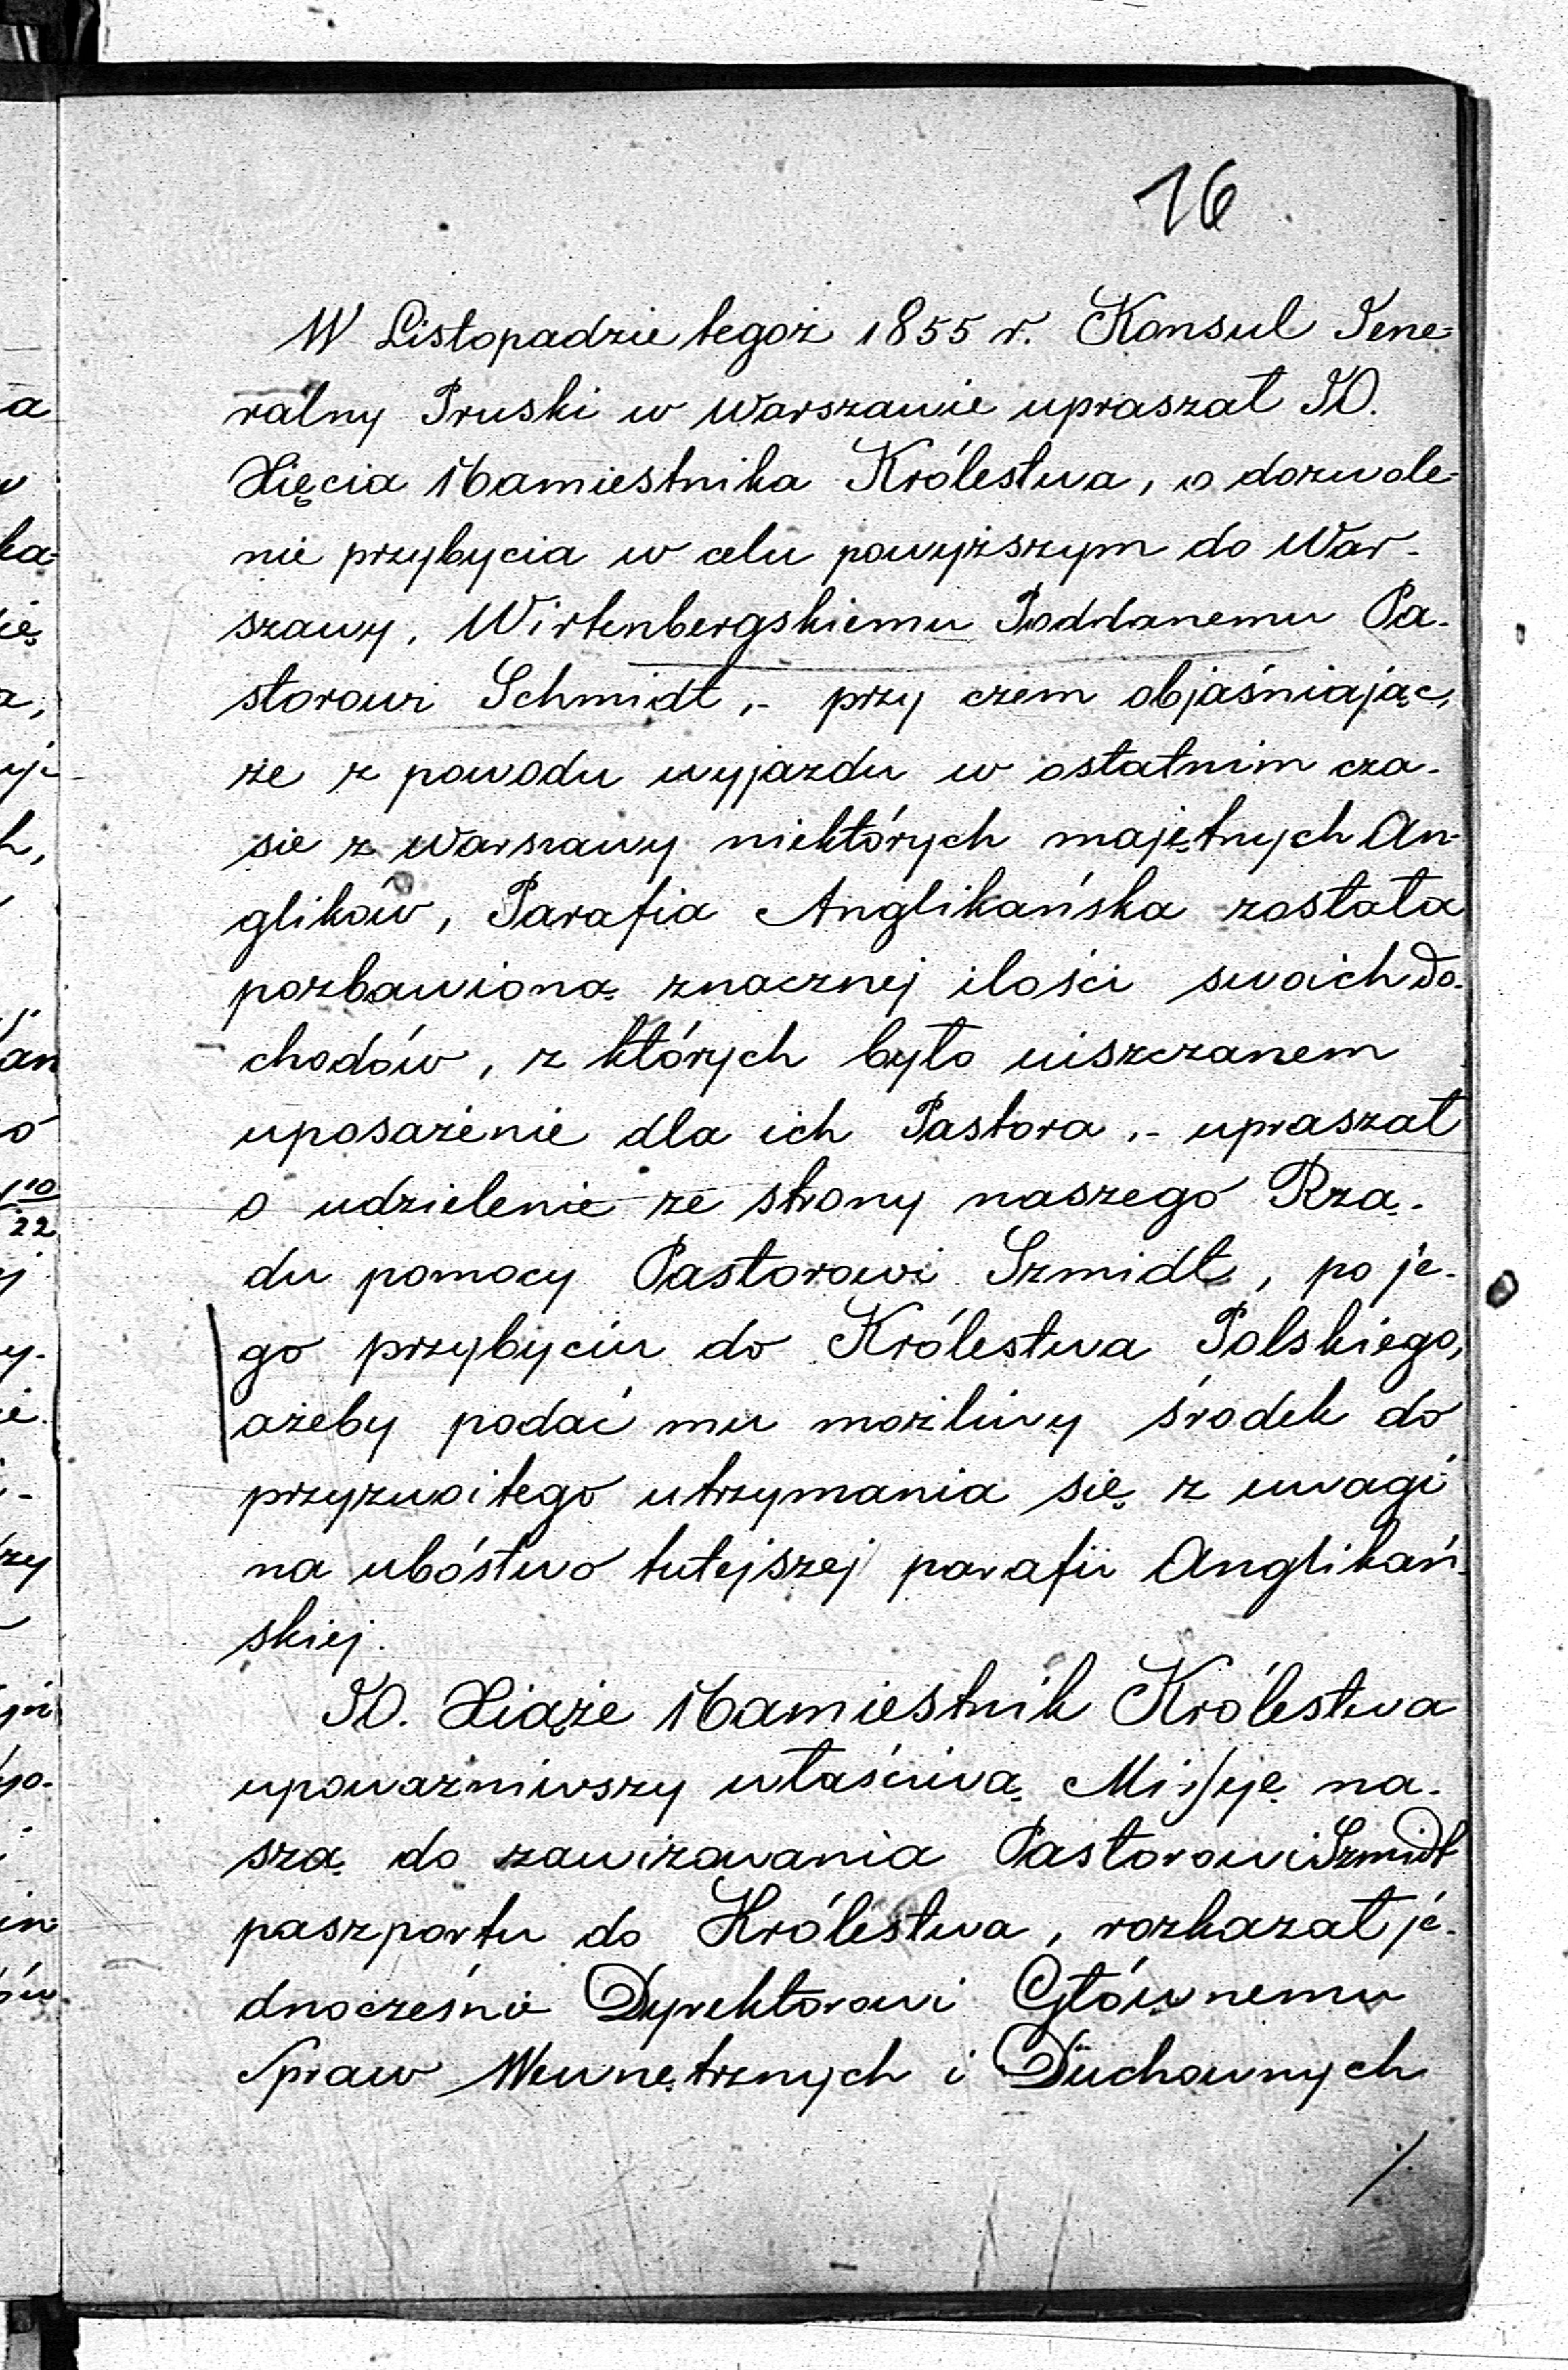 16
W Listopadzie tegoż 1855 r. Konsul Jene-
ralny Pruski w Warszawie upraszał JO.
Xięcia Namiestnika Królestwa, o dozwole-
nie przybycia w celu powyższym do War-
szawy, Wirtenbergskiemu Poddanemu Pa-
storowi Schmidt,- przy czem objaśniając,
że z powodu wyjazdu w ostatnim cza-
sie z Warszawy niektórych majętnych An-
glików, Parafia Anglikańska została
pozbawioną znacznej ilości swoich do-
chodów, z których było uiszczanem
uposażenie dla ich Pastora,- upraszał
o udzielenie ze strony naszego Rzą-
du pomocy Pastorowi Szmidt, po je-
go przybyciu do Królestwa Polskiego,
ażeby podać mu możliwy środek do
przyzwoitego utrzymania się z uwagi
na ubóstwo tutejszej parafii Anglikań-
skiej.
JO. Xiąże Namiestnik Królestwa
upoważniwszy właściwą Missyę na-
szą do zawizowania Pastorowi Szmidt
paszportu do Królestwa, rozkazał je-
dnocześnie Dyrektorowi Głównemu
Spraw Wewnętrznych i Duchownych
./.